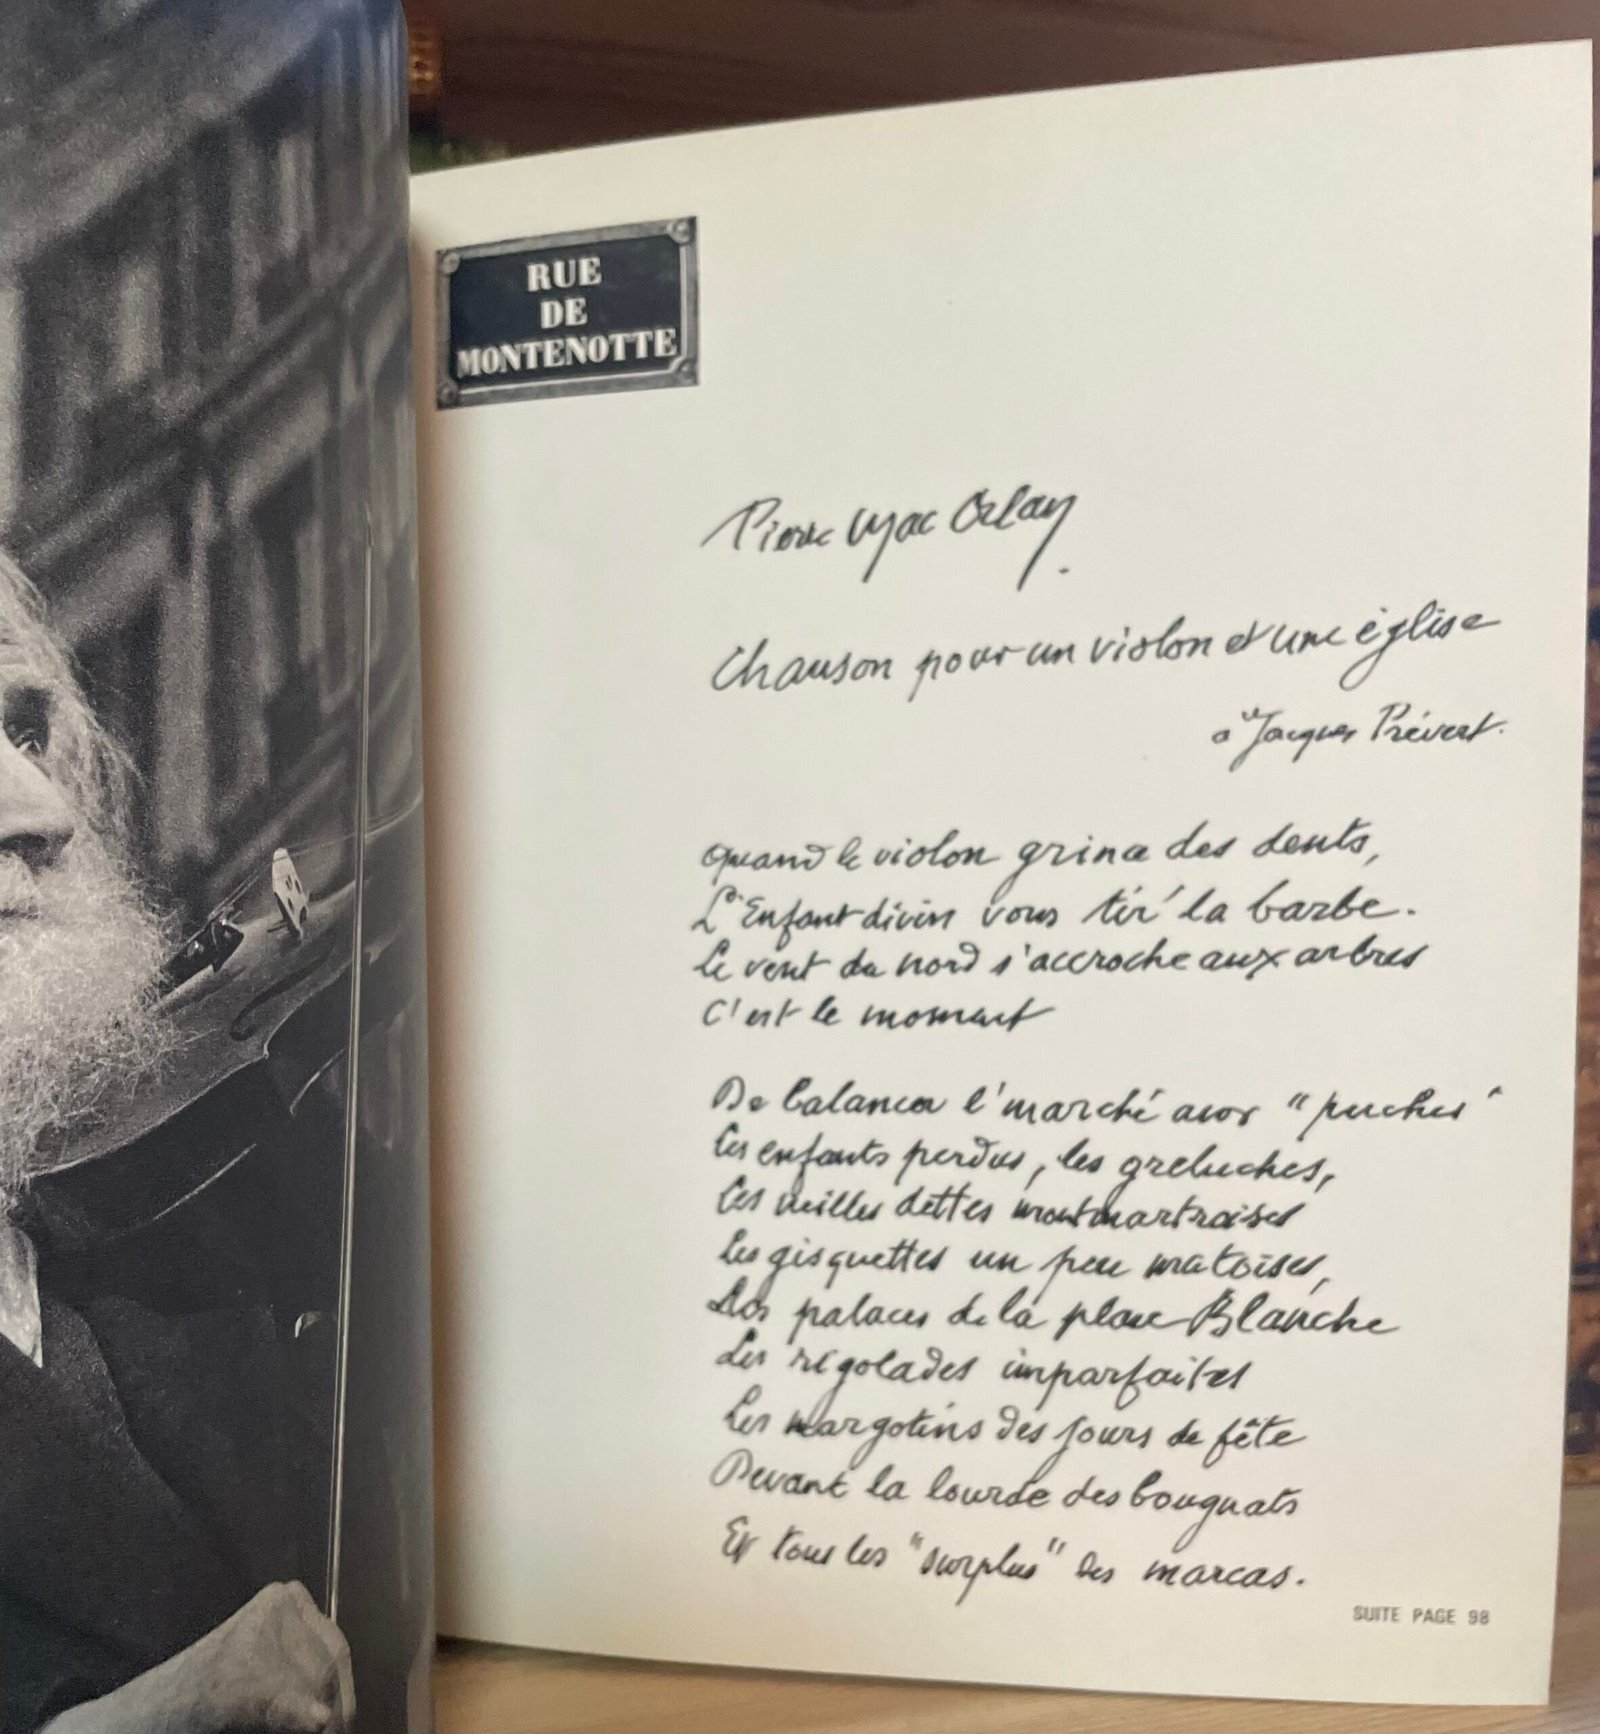 RUE
DE
MONTENOTTE
Pierre Mac Orlan
Chanson pour un violon et une église
à Jacques Prévert.
Quand le violon grince des dents,
L'Enfant divin vous tir' la barbe.
Le vent du nord s'accroche aux arbres
C'est le moment
De balancer l'marché aux "puches"
Les enfants perdus, les greluches,
Les vieilles dettes montmartroises
Les gisquettes un peu matoises,
Les palaces de la place Blanche
Les rigolades imparfaites
Les margotins des jours de fête
Devant la lourde des bougnats
Et tous les "surplus" des marcas.
SUITE PAGE 98